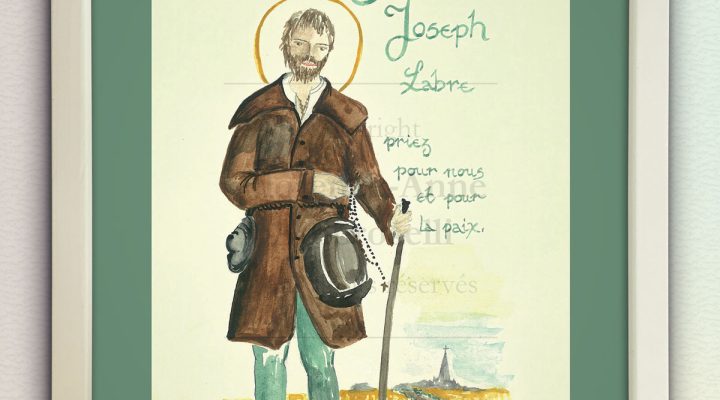 Joseph
Labre
right
priez
pour nous
-Anne
et pour
la paix.
elli
réservés